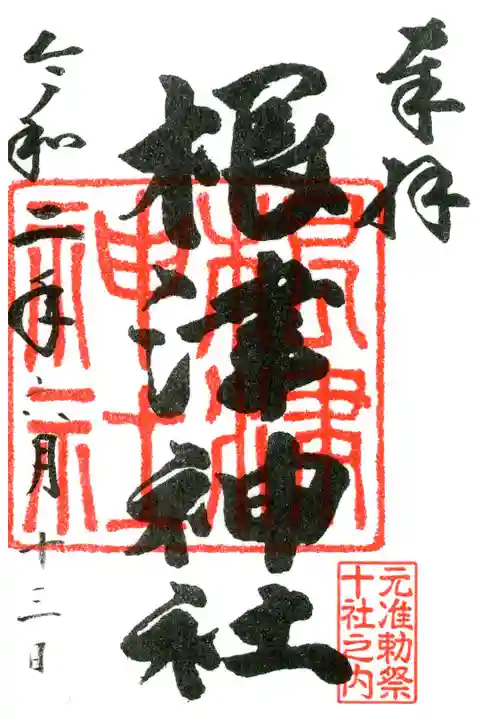 奉拝
根津神社
令和二年六月十三日
根津
神社
元准勅祭
十社之内